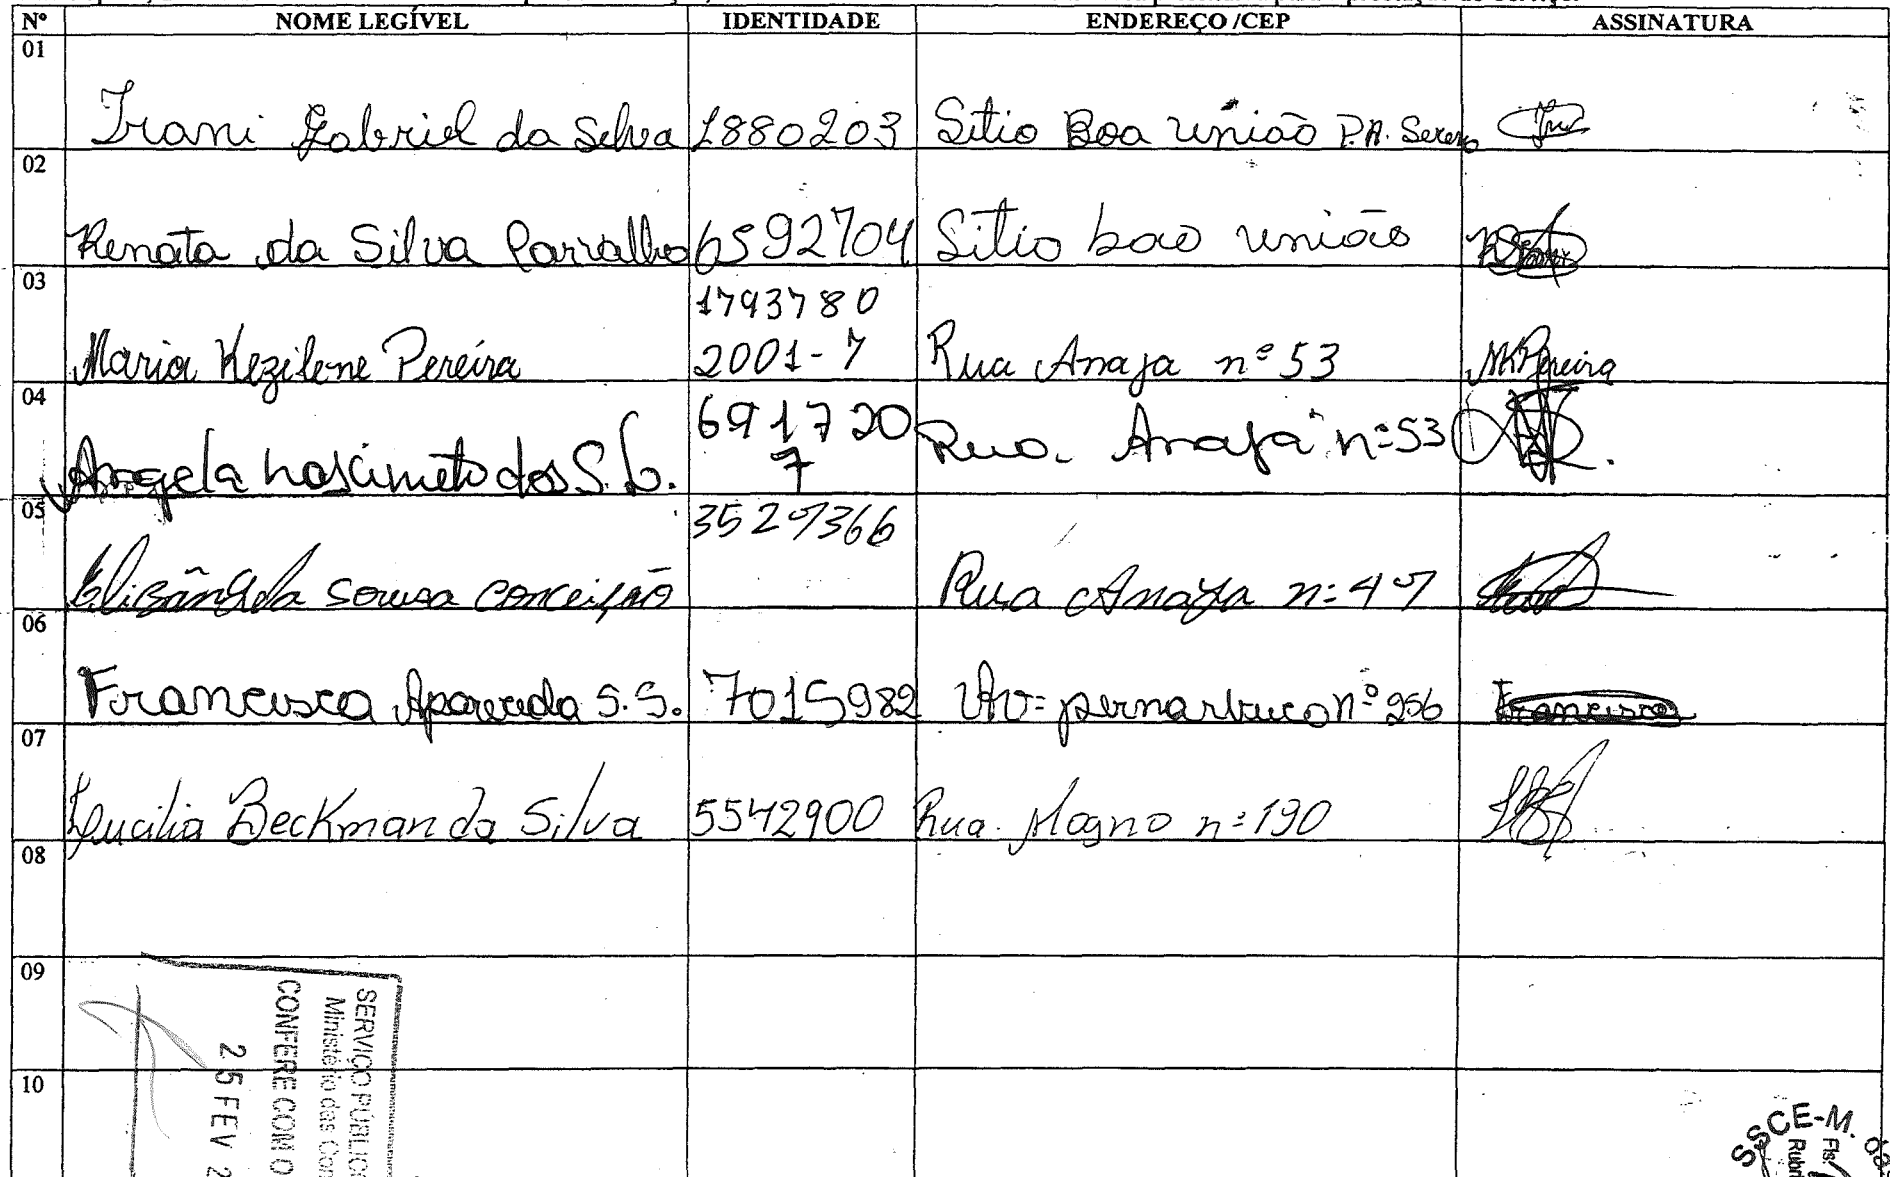 Nº NOME LEGÍVEL IDENTIDADE ENDEREÇO /CEP ASSINATURA
01
Irani Gabriel da Silva 1880203 Sitio Boa união P.A. Sereno
02
Renata da Silva Carvalho 6592704 Sitio boa união
03
1793780
Maria Kezilene Pereira 2001-7 Rua Anaja nº 53 MKPereira
04
691720
Angela nascimeto dos S. L. 7 Rua Anajá nº 53
05
3527366
Elisângela sousa conceição Rua Anaja n: 47
06
Francisca Aparecida S.S. 7015982 Av= pernanbuco nº 256 Francisca
07
Lucilia Beckman da Silva 5542900 Rua Magno nº 190
08
09
10
SERVIÇO PÚBLICO
Ministério das Com
CONFERE COM O
25 FEV 2
SSCE-M.
Fls:
Rubri